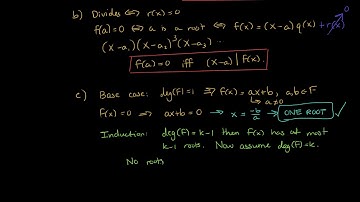 b) Divides ⟺ r(x)=0
f(a)=0 ⟺ a is a root ⟺ f(x)=(x-a)q(x)+r(x) 0
(x-a₁)(x-a₂)³(x-a₃)...
f(a)=0 iff (x-a)|f(x).
c) Base case: deg(f)=1 ⟹ f(x)=ax+b, a,b∈F
↳ a≠0
f(x)=0 ⟹ ax+b=0 → x = -b/a → ONE ROOT ✓
Induction: deg(f)=k-1 then f(x) has at most
k-1 roots. Now assume deg(f)=k.
No roots